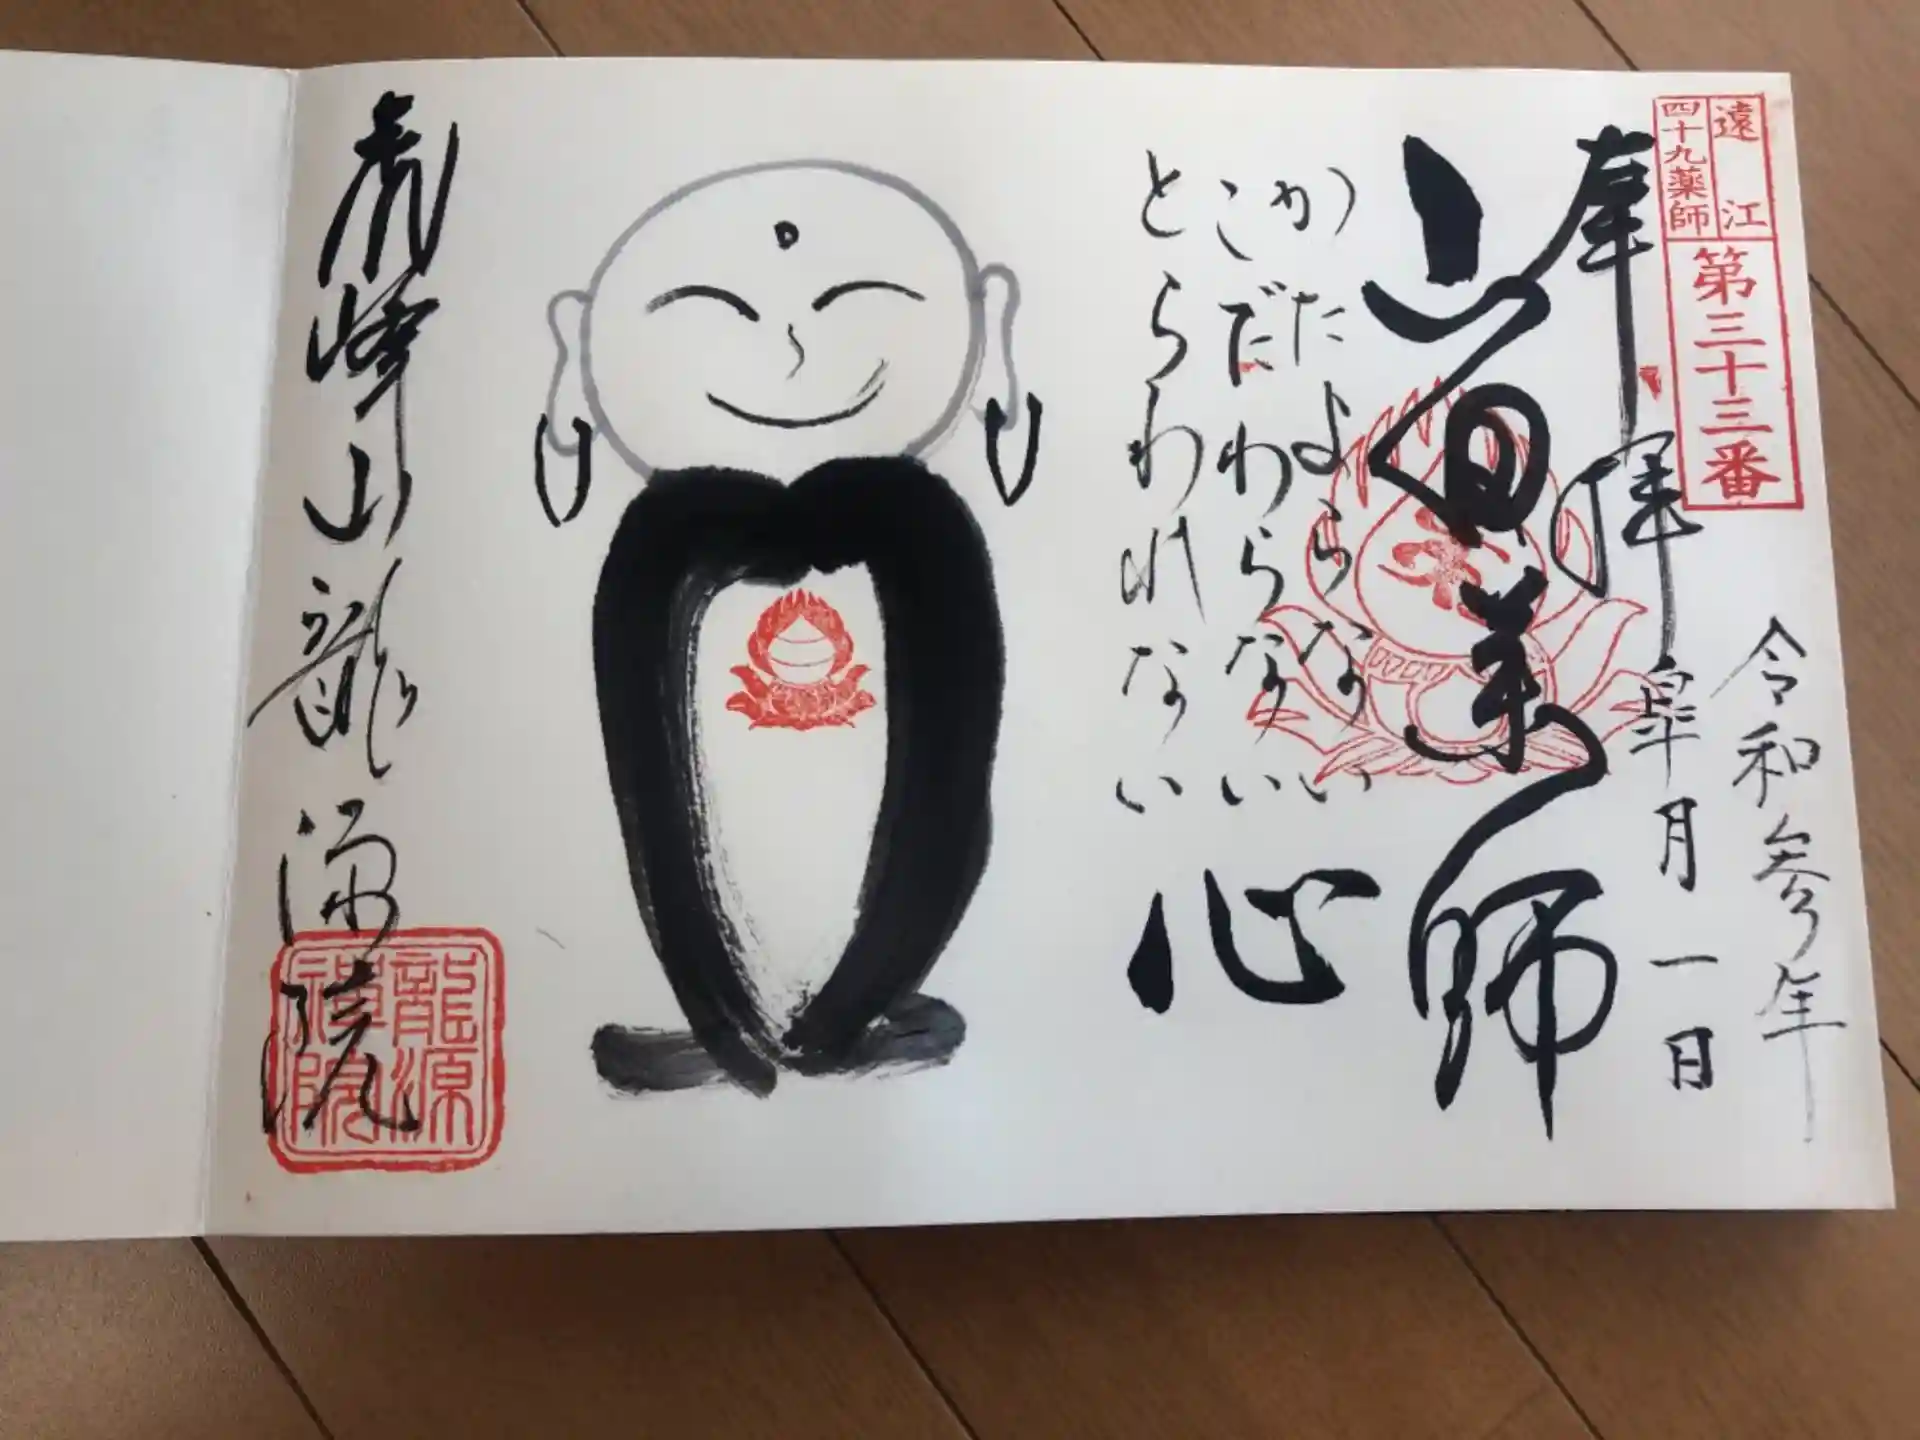 遠江
四十九薬師
第三十三番
令和参年
皐月一日
奉拝
山田薬師
かたよらない
こだわらない
とらわれない
心
虎峰山龍源院
龍源
禅院